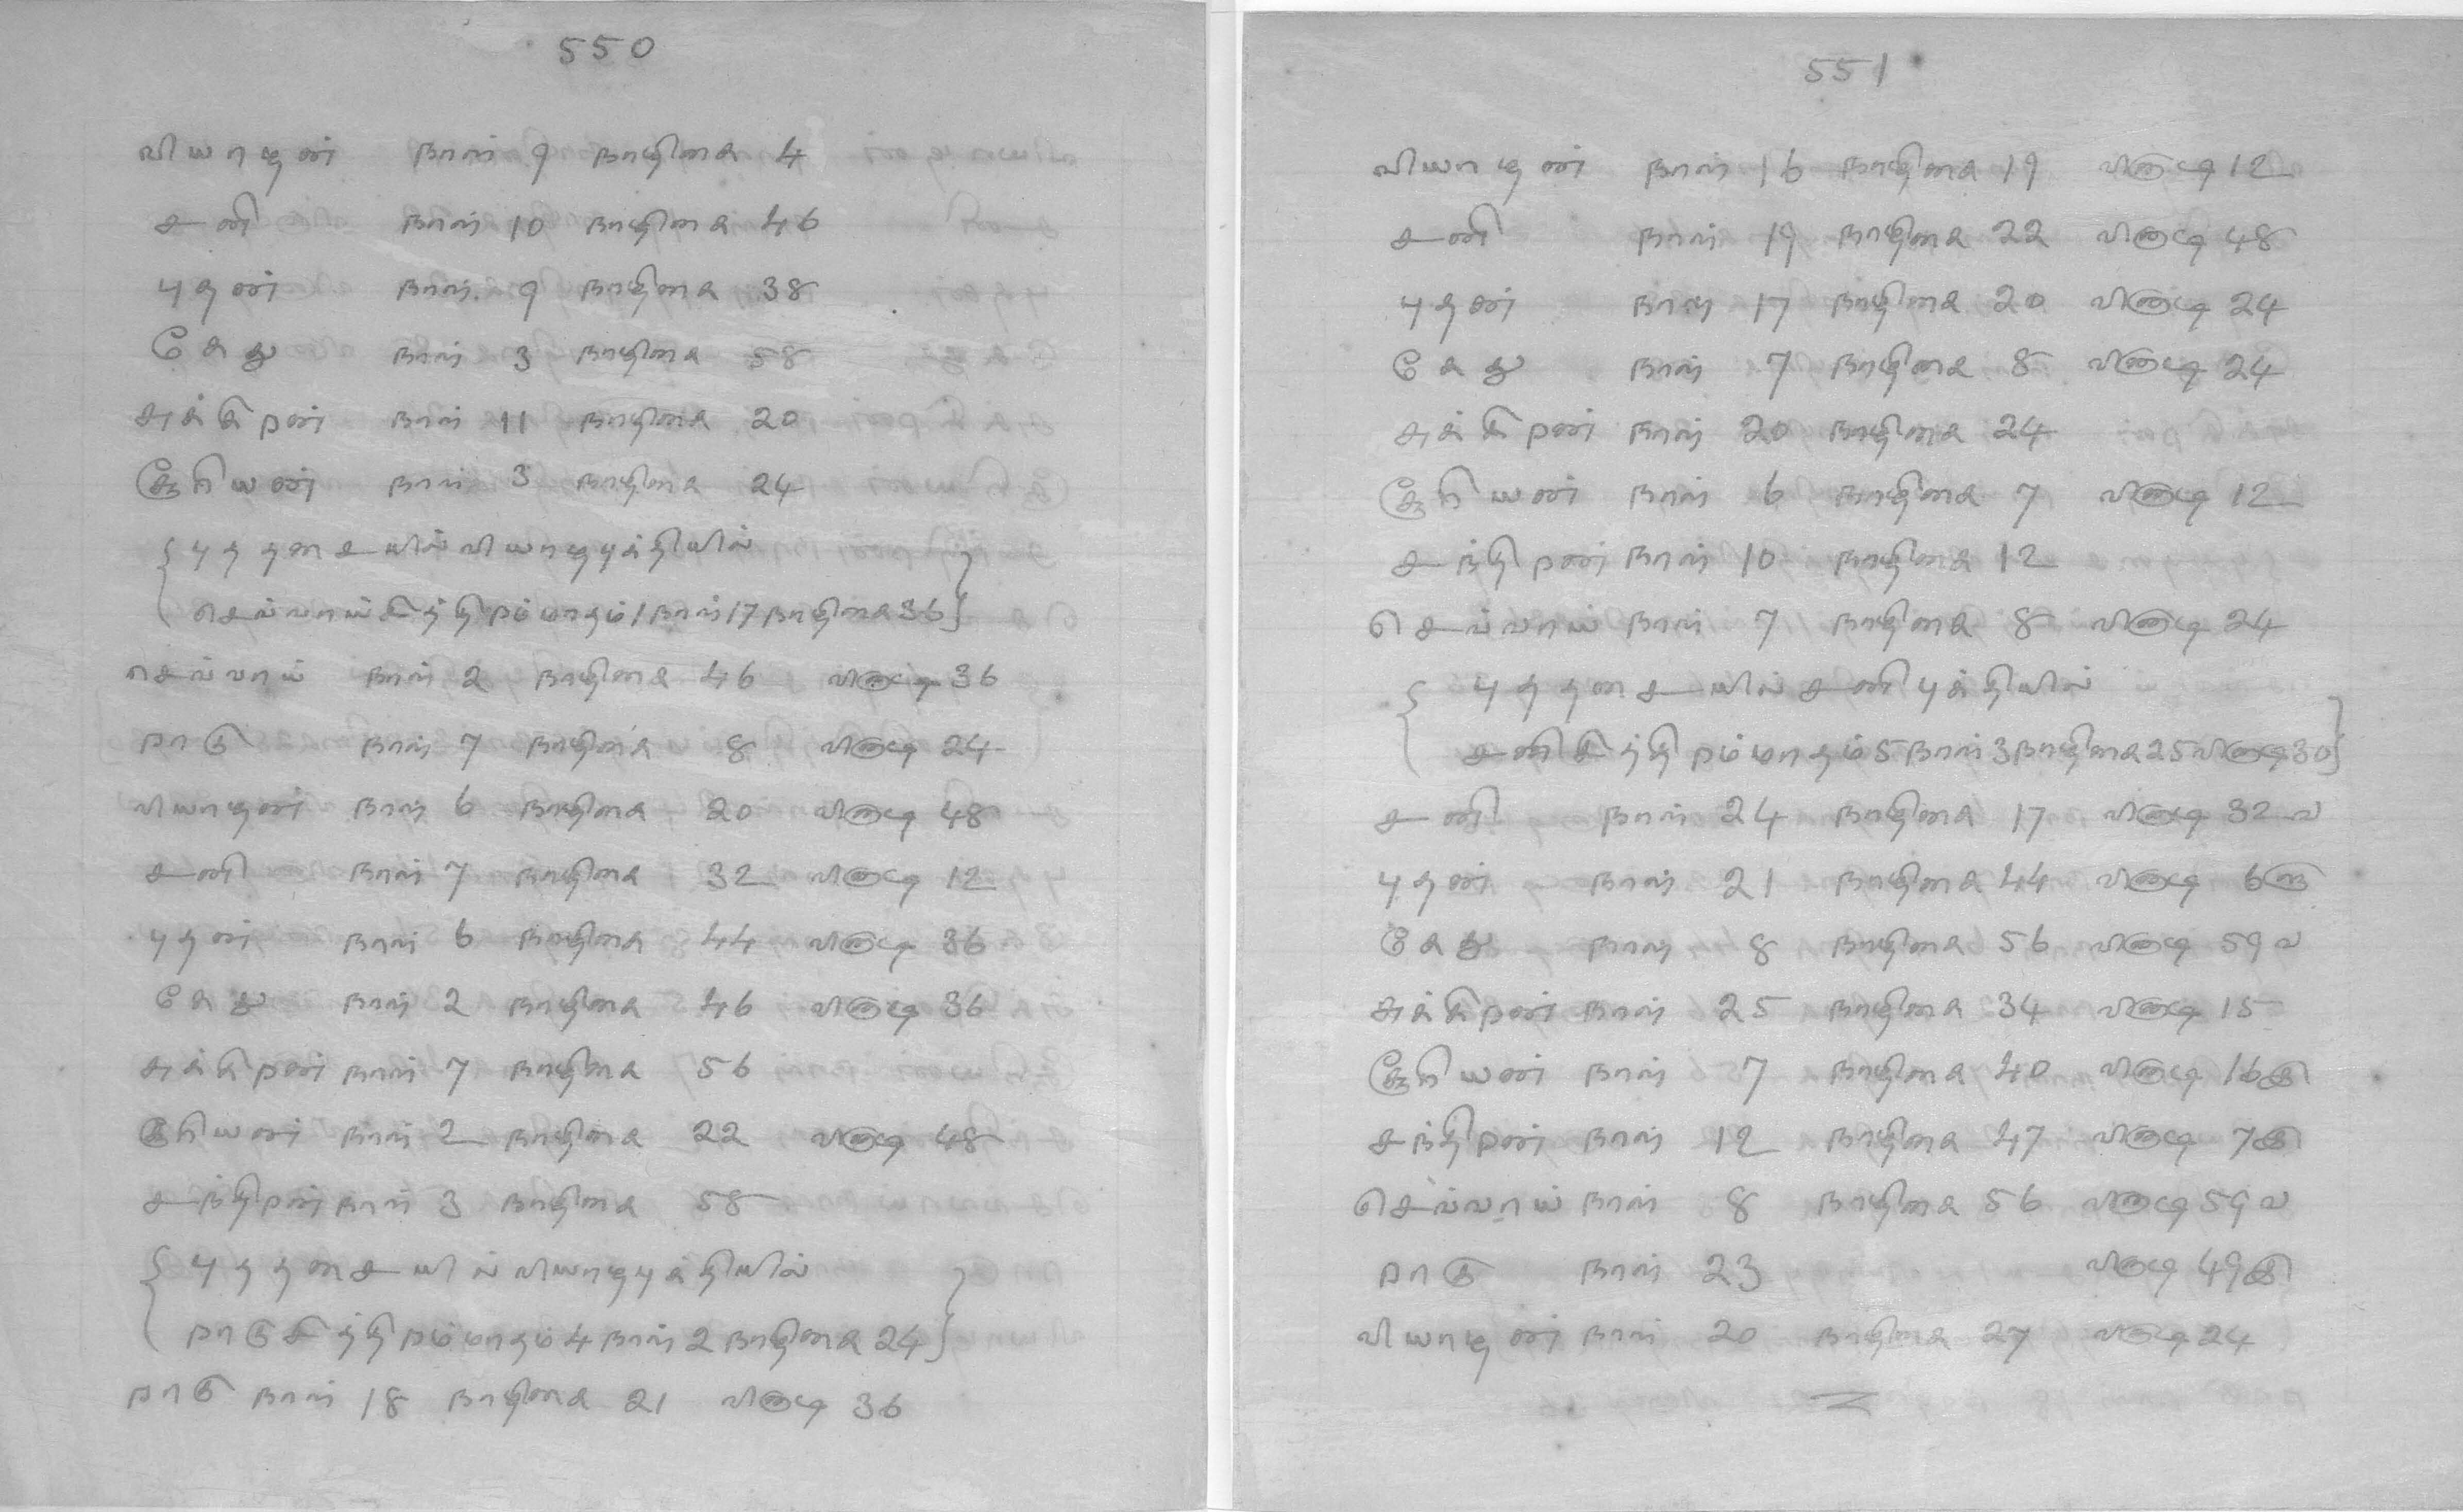 550
வியாழன் நாள் 9 நாழிகை 4
சனி நாள் 10 நாழிகை 46
புதன் நாள் 9 நாழிகை 38
கேது நாள் 3 நாழிகை 58
சுக்கிறன் நாள் 11 நாழிகை 20
சூரியன் நாள் 3 நாழிகை 24
{புததசையில் வியாழபுக்தியில்
செவ்வாய்சித்திறம் மாதம் 1 நாள் 17 நாழிகை 36}
செவ்வாய் நாள் 2 நாழிகை 46 வினாடி 36
றாகு நாள் 7 நாழிகை 8 வினாடி 24
வியாழன் நாள் 6 நாழிகை 20 வினாடி 48
சனி நாள் 7 நாழிகை 32 வினாடி 12
புதன் நாள் 6 நாழிகை 44 வினாடி 36
கேது நாள் 2 நாழிகை 46 வினாடி 36
சுக்கிறன் நாள் 7 நாழிகை 56
சூரியன் நாள் 2 நாழிகை 22 வினாடி 48
சந்திறன் நாள் 3 நாழிகை 58
{புததசையில் வியாழபுக்தியில்
றாகுசித்திறம் மாதம் 4 நாள் 2 நாழிகை 24}
றாகு நாள் 18 நாழிகை 21 வினாடி 36
551
வியாழன் நாள் 16 நாழிகை 19 வினாடி 12
சனி நாள் 19 நாழிகை 22 வினாடி 48
புதன் நாள் 17 நாழிகை 20 வினாடி 24
கேது நாள் 7 நாழிகை 8 வினாடி 24
சுக்கிறன் நாள் 20 நாழிகை 24
சூரியன் நாள் 6 நாழிகை 7 வினாடி 12
சந்திறன் நாள் 10 நாழிகை 12
செவ்வாய் நாள் 7 நாழிகை 8 வினாடி 24
{புததசையில் சனிபுக்தியில்
சனிசித்திறம் மாதம் 5 நாள் 3 நாழிகை 25 வினாடி 30}
சனி நாள் 24 நாழிகை 17 வினாடி 32 வ
புதன் நாள் 21 நாழிகை 44 வினாடி 6
கேது நாள் 8 நாழிகை 56 வினாடி 59 வ
சுக்கிறன் நாள் 25 நாழிகை 34 வினாடி 15
சூரியன் நாள் 7 நாழிகை 40 வினாடி 16
சந்திறன் நாள் 12 நாழிகை 47 வினாடி 7
செவ்வாய் நாள் 8 நாழிகை 56 வினாடி 59 வ
றாகு நாள் 23 வினாடி 49
வியாழன் நாள் 20 நாழிகை 27 வினாடி 24